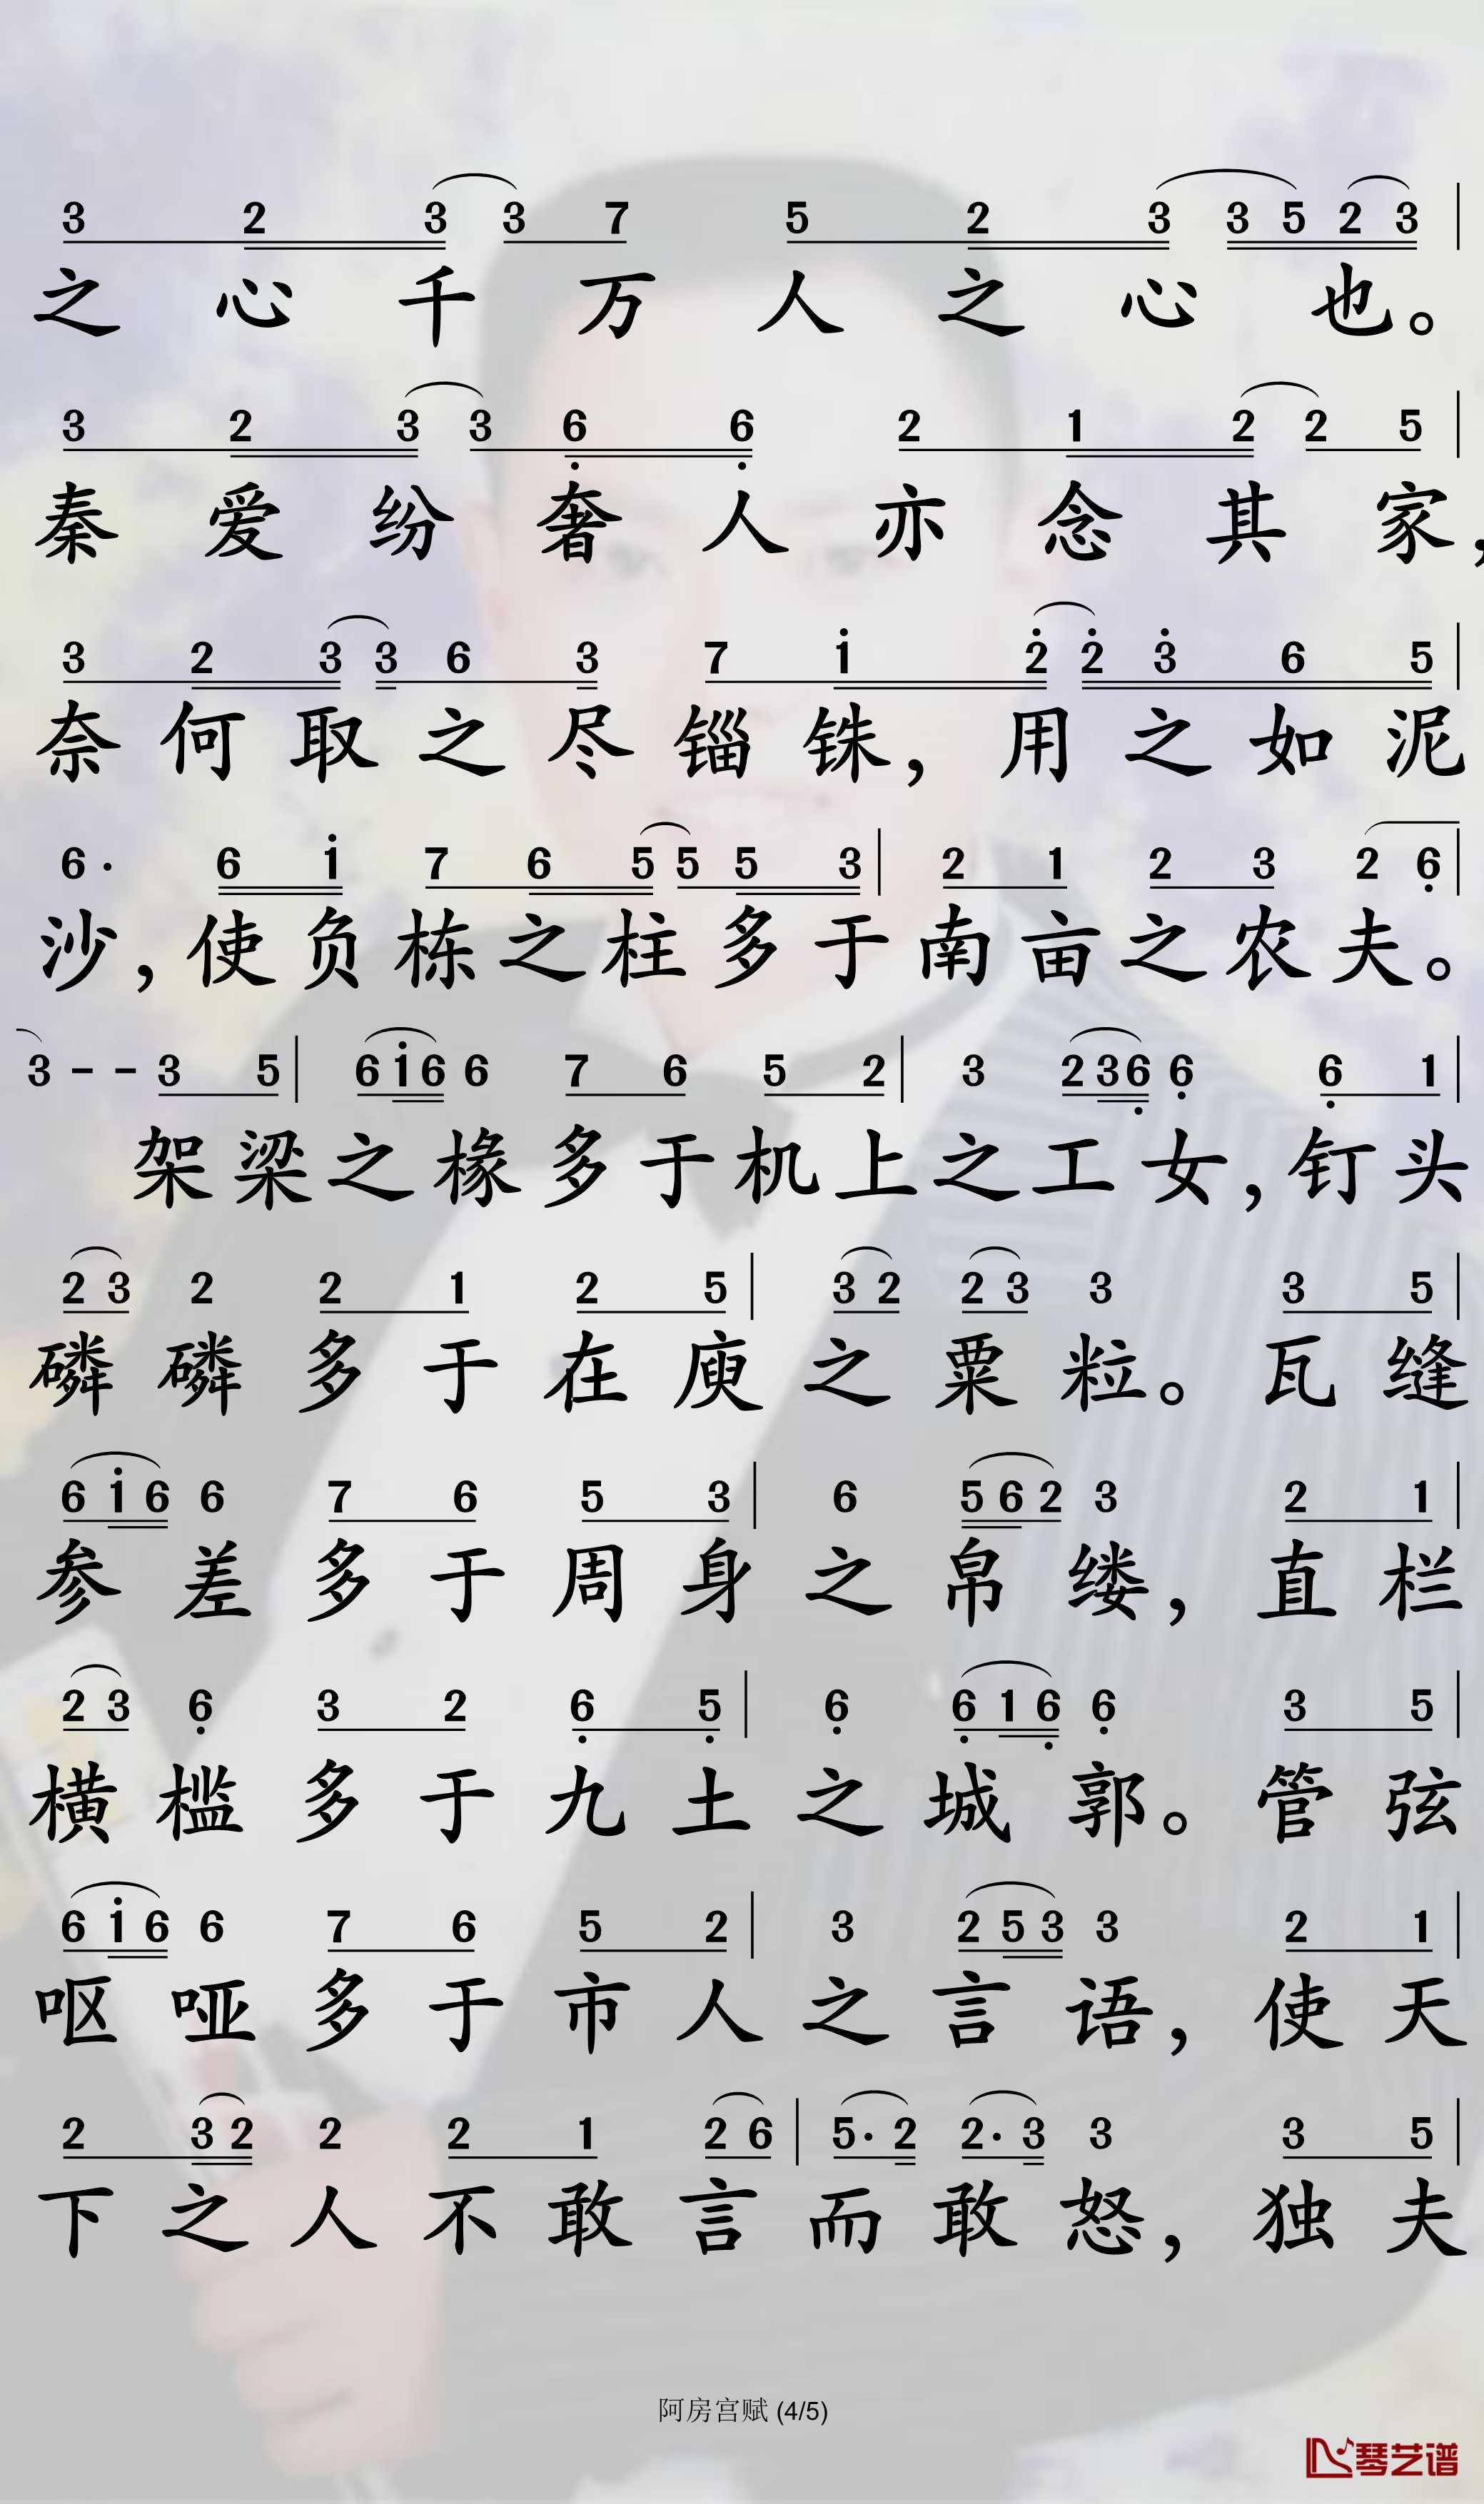 3 2 3 3 7 5 2 3 3 5 2 3
之心千万人之心也。
3 2 3 3 6 6 2 1 2 2 5
秦爱纷奢人亦念其家，
3 2 3 3 6 3 7 i 2 2 3 6 5
奈何取之尽锱铢，用之如泥
6· 6 i 7 6 5 5 5 3 | 2 1 2 3 2 6
沙，使负栋之柱多于南亩之农夫。
3 - - 3 5 | 6 i 6 6 7 6 5 2 | 3 2 3 6 6 6 1
架梁之椽多于机上之工女，钉头
2 3 2 2 1 2 5 | 3 2 2 3 3 3 5
磷磷多于在庾之粟粒。瓦缝
6 i 6 6 7 6 5 3 | 6 5 6 2 3 2 1
参差多于周身之帛缕，直栏
2 3 6 3 2 6 5 | 6 6 1 6 6 3 5
横槛多于九土之城郭。管弦
6 i 6 6 7 6 5 2 | 3 2 5 3 3 2 1
呕哑多于市人之言语，使天
2 3 2 2 2 1 2 6 | 5· 2 2· 3 3 3 5
下之人不敢言而敢怒，独夫
阿房宫赋 (4/5)
琴艺谱